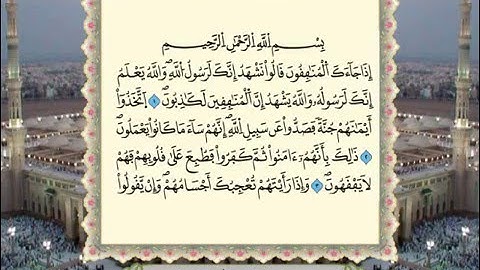 بِسْمِ اللَّهِ الرَّحْمَٰنِ الرَّحِيمِ
إِذَا جَاءَكَ الْمُنَافِقُونَ قَالُوا نَشْهَدُ إِنَّكَ لَرَسُولُ اللَّهِ ۗ وَاللَّهُ يَعْلَمُ
إِنَّكَ لَرَسُولُهُ وَاللَّهُ يَشْهَدُ إِنَّ الْمُنَافِقِينَ لَكَاذِبُونَ ١ اتَّخَذُوا
أَيْمَانَهُمْ جُنَّةً فَصَدُّوا عَن سَبِيلِ اللَّهِ ۚ إِنَّهُمْ سَاءَ مَا كَانُوا يَعْمَلُونَ
٢ ذَٰلِكَ بِأَنَّهُمْ ءَامَنُوا ثُمَّ كَفَرُوا فَطُبِعَ عَلَىٰ قُلُوبِهِمْ فَهُمْ
لَا يَفْقَهُونَ ٣ وَإِذَا رَأَيْتَهُمْ تُعْجِبُكَ أَجْسَامُهُمْ ۖ وَإِن يَقُولُوا